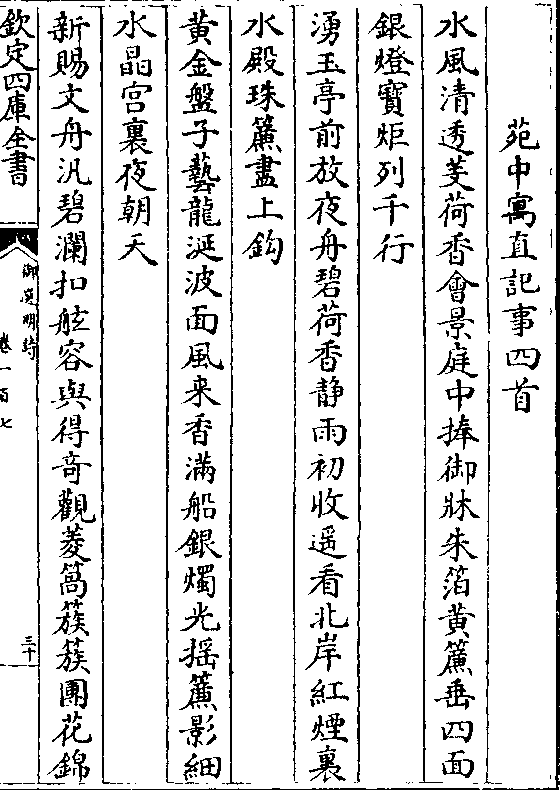 苑中寓直記事四首
水風清透芰荷香會景庭中捧御牀朱箔黃簾垂四面
銀燈寶炬列千行
湧玉亭前放夜舟碧荷香靜雨初收遥看北岸紅煙裏
水殿珠簾盡上鈎
黃金盤子藝龍涎波面風来香滿船銀燭光摇簾影細
水晶宫裏夜朝天
新賜文舟汎碧瀾扣舷容與得竒觀菱篙簇簇團花錦
欽定四庫全書
御選明詩
卷一百七
三十